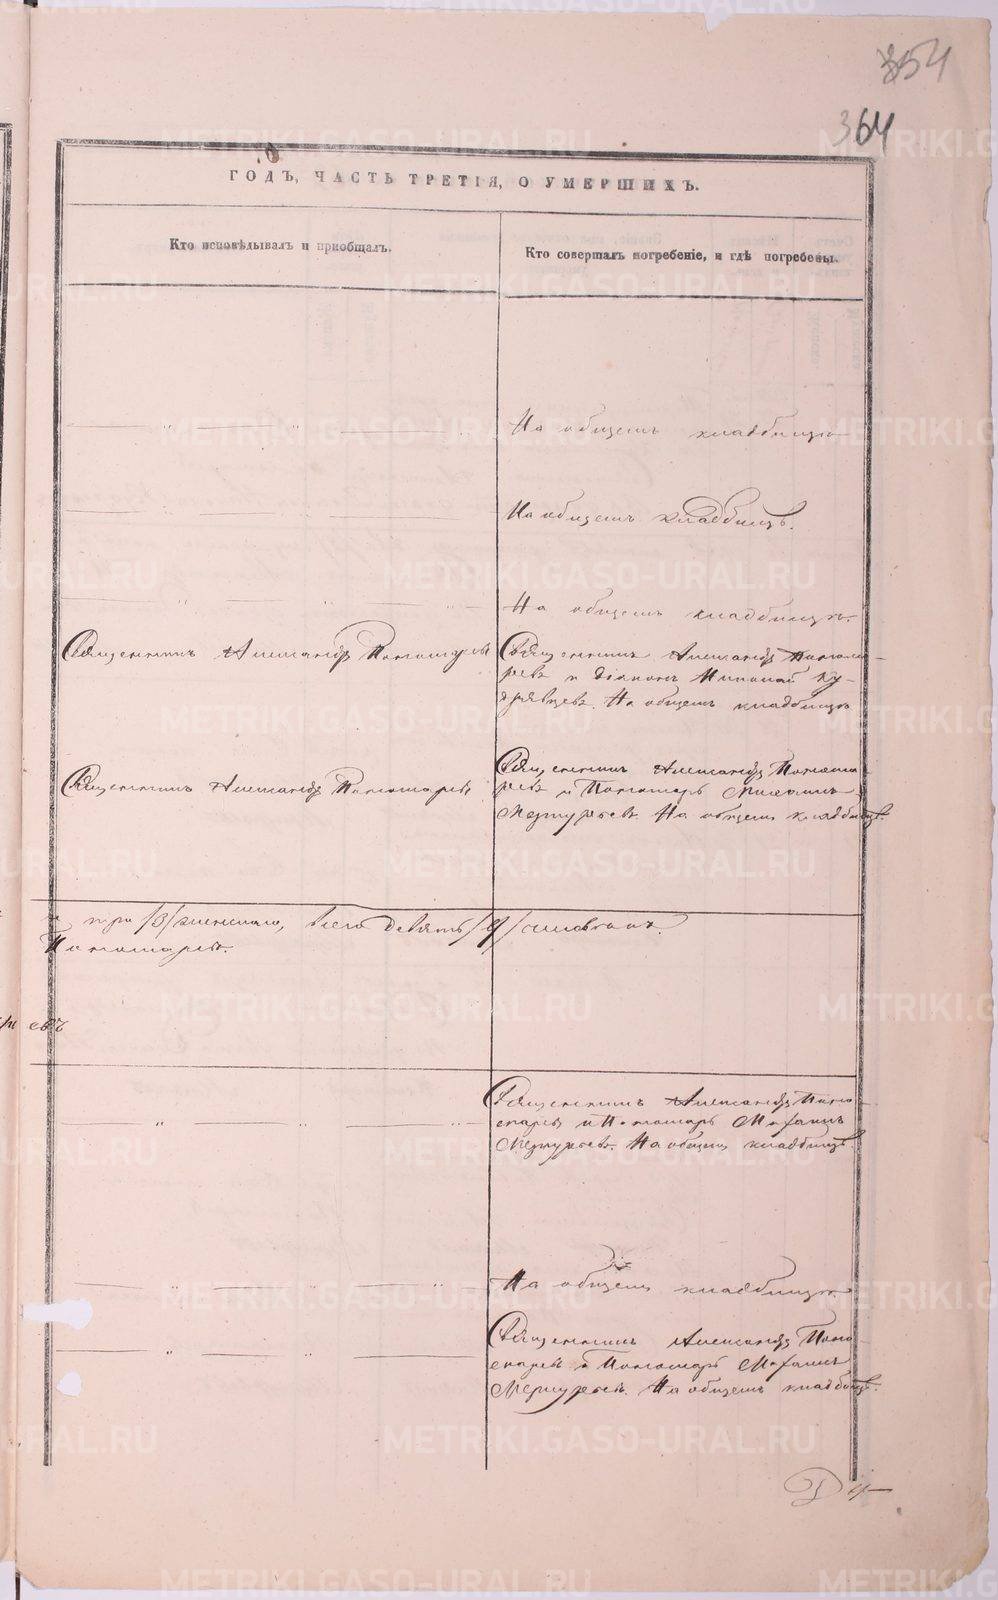 354
364
ГОДЪ, ЧАСТЬ ТРЕТІЯ, О УМЕРШИХЪ.
Кто исповѣдывалъ и пріобщалъ.
Кто совершалъ погребеніе, и гдѣ погребены.
На общемъ кладбищѣ
На общемъ кладбищѣ.
На общемъ кладбищѣ.
Священникъ Александръ Пономаревъ
Священникъ Александръ Понома-
ревъ и діаконъ Николай Ку-
дрявцевъ. На общемъ кладбищѣ
Священникъ Александръ Пономаревъ
Священникъ Александръ Понома-
ревъ и Пономарь
На общемъ кладбищѣ.
и три /3/ женскаго, всего девять /9/ человѣкъ.
Пономаревъ.
евъ
Священникъ Александръ Поно-
маревъ и Пономарь
На общемъ кладбищѣ.
На общемъ кладбищѣ
Священникъ Александръ Поно-
маревъ и Пономарь
На общемъ кладбищѣ.
METRIKI.GASO-URAL.RU